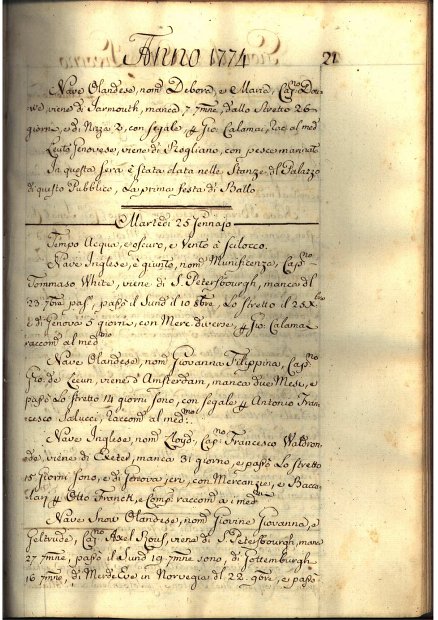 Anno 1774
21
Nave Olandese, nom.ta Debora, e Maria, Cap.no
viene di Jarmouth, manca 7 7mne, dallo stretto 26
giorni, e di Nizza 2, con segale, Gio: Calamai, racc al med
Leuto Genovese, viene di Rogliano, con pesce marinato
In questa sera è stata data nelle Stanze del Palazzo
di questo Pubblico, la prima festa di Ballo
Martedì 25 Jennajo
Tempo Acqua, e oscuro, e Vento à scilocco.
Nave Inglese, è giunto, nom. Munificenza, Cap.no
Tommaso White, viene di S. Petersbourgh, manca dl
23 7bre pas.o, passò il Sund il 10 8bre, lo stretto il 25 X.bre
e di Genova 5 giorni, con Merc. diverse, Gio: Calamai
raccom al med.mo
Nave Olandese, nom Giovanna Filippina, Cap.no
Gio: de Leeun, viene d'Amsterdam, manca due Mesi, e
passò lo stretto 14 giorni sono, con segale Antonio Fran=
cesco Salucci, raccom al med.mo
Nave Inglese, nom Lloyd, Cap. Francesco Waldron
viene di Exeter, manca 31 giorno, e passò lo stretto
15 giorni sono, e di Genova jeri, con Mercanzie, e Bacca=
lari Otto Franck, e Comp. raccom a i med.mi
Nave Snow Olandese, nom Giovine Giovanna, e
Geltrude, Cap.no Axel viene di S. Petersbourgh, manca
27 7mne, passò il Sund 19 7mne sono, di Gottemburgh
16 7mne, di in Norvegia dl 22 9bre, e passò